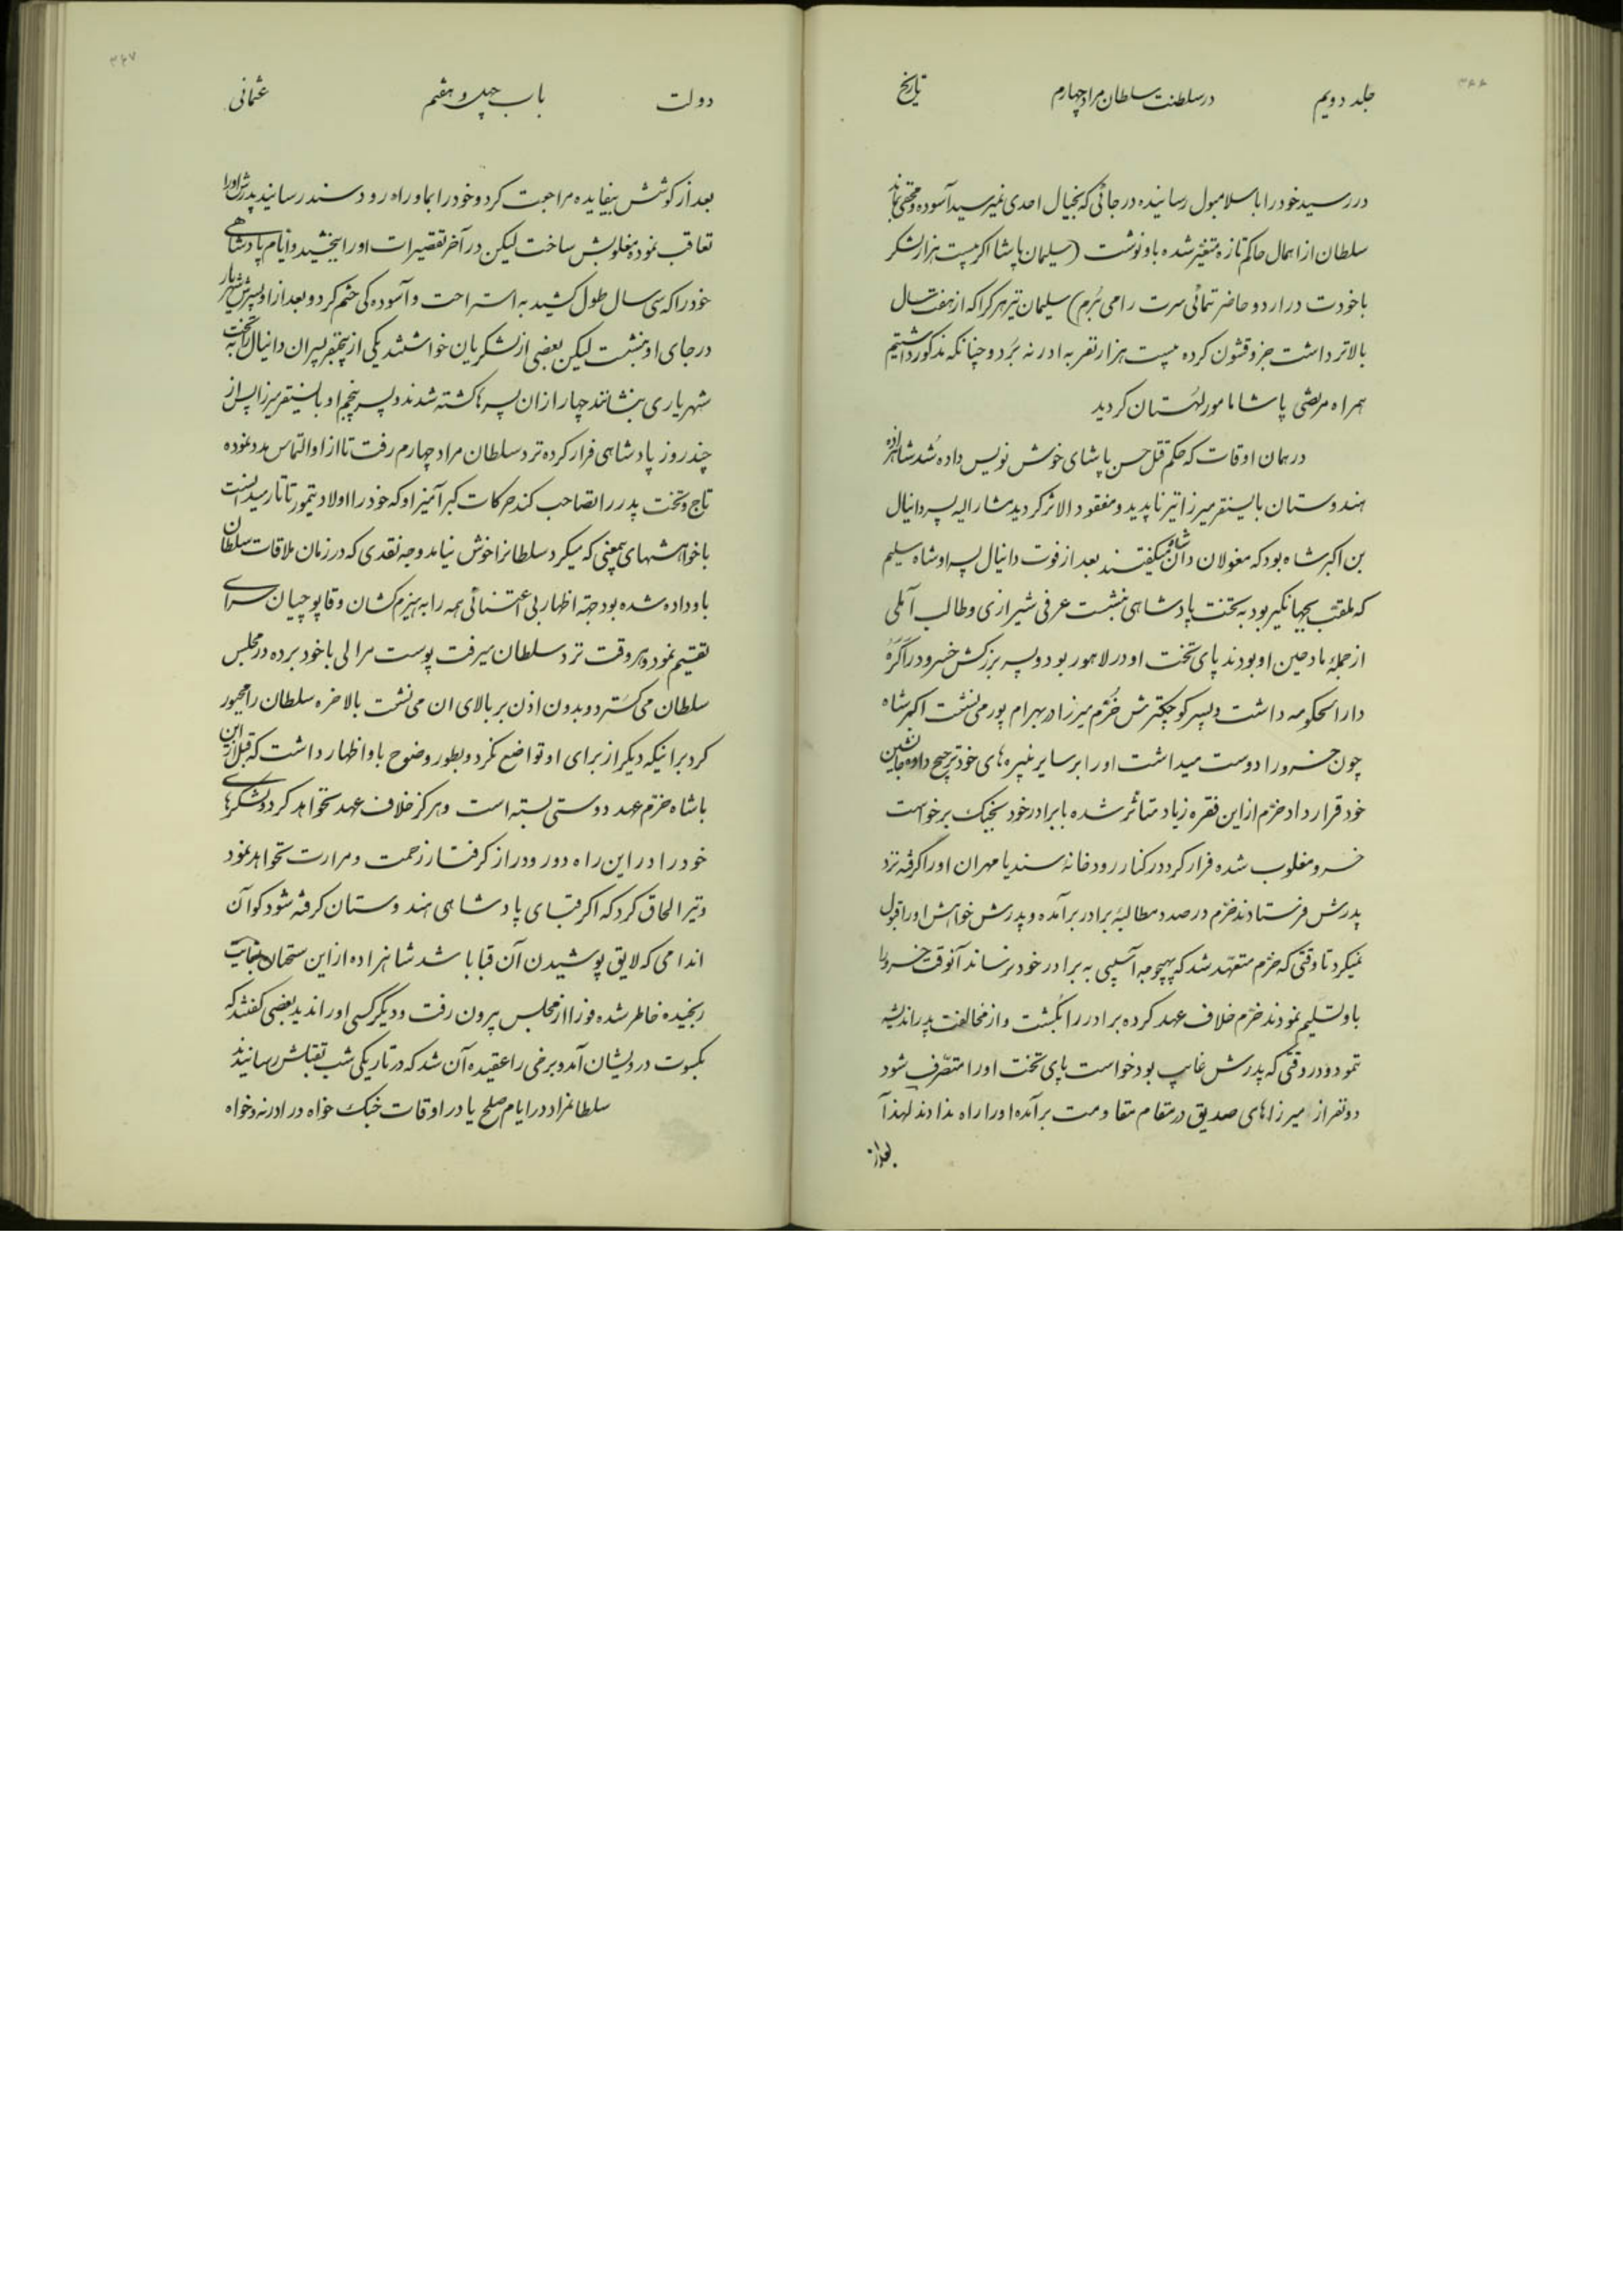 ۳۶۶
جلد دویم در سلطنت سلطان مراد چهارم تاریخ
در رسید خود را باسلامبول رسانیده در جائی که بخیال احدی نمیرسید آسوده و مخفی بماند
سلطان از اهمال حاکم تازه متغیر شده باو نوشت (سلیمان پاشا اکر بیست هزار لشکر
با خودت در اردو حاضر ننمائی سرت را می بُرم) سلیمان نیز هر کرا که از هفت سال
بالاتر داشت جزو قشون کرده بیست هزار نفر به ادرنه بَرد و چنانکه مذکور داشتیم
همراه مرتضی پاشا مامور لهستان کردید
در همان اوقات که حکم قتل حسن پاشای خوش نویس داده شُد شاهزاده
هندوستان بایسنقر میرزا نیز ناپدید و مفقود الاثر کردید مشار الیه پسر دانیال
بن اکبر شاه بود که مغولان دانشاه میکفتند بعد از فوت دانیال پسر او شاه سلیم
که ملقب بجهانکیر بود به تخت پادشاهی بنشست عرفی شیرازی و طالب آملی
از جملهٔ مادحین او بودند پای تخت او در لاهور بود و پسر بزرکش خسرو در اَکَرَه
دارالحکومه داشت و پسر کوچکترش خُرَّم میرزا در بهرام پور می نشست اکبر شاه
چون خسرو را دوست میداشت او را بر سایر نبیره های خود ترجیح داده جانشین
خود قرار داد خرّم از این فقره زیاد متأثر شده با برادر خود بجنک برخواست
خسرو مغلوب شده فرار کرد در کنار رودخانهٔ سند یا مهران او را کرفته نزد
پدرش فرستادند خرّم در صدد مطالبهٔ برادر برآمده و پدرش خواهش او را قبول
نمیکرد تا وقتی که خرّم متعهّد شد که بهیچوجه آسیبی به برادر خود نرساند آنوقت خسرو را
باو تسلیم نمودند خرّم خلاف عهد کرده برادر را بکُشت و از مخالفت پدر اندیشه
نمود و در وقتی که پدرش غایب بود خواست پای تخت او را متصّرف شود
دو نفر از میرزاهای صدیق در مقام مقاومت برآمده او را راه ندادند لهذا
بعد از
۳۶۷
دولت باب چهل و هفتم عثمانی
بعد از کوشش بیفایده مراجعت کرد و خود را بماوراه رود سند رسانید پدرش او را
تعاقب نموده مغلوبش ساخت لیکن در آخر تقصیرات او را ببخشید و ایام پادشاهی
خود را که سی سال طول کشید به استراحت و آسوده کی ختم کرد و بعد از او پسرش شهریار
در جای او بنشست لیکن بعضی از لشکریان خواستند یکی از پنجنفر پسران دانیال را به تخت
شهریاری بنشانند چهار از ان پسرها کشته شدند و پسر پنجم او بایسنقر میرزا پس از
چند روز پادشاهی فرار کرده نزد سلطان مراد چهارم رفت تا از او التماس مدد نموده
تاج و تخت پدر را تصاحب کند حرکات کبر آمیز او که خود را اولاد تیمور تاتار میدانست
با خواهشهای بیمعنی که میکرد سلطانرا خوش نیامد وجه نقدی که در زمان ملاقات سلطان
باو داده شده بود جهة اظهار بی اعتنائی همه را به هیزم کشان و قاپوچیان سرای
تقسیم نمود و هر وقت نزد سلطان میرفت پوست مرالی با خود برده در مجلس
سلطان می کسترد و بدون اذن بر بالای ان می نشت بالاخره سلطان را مجبور
کرد بر اینکه دیکر از برای او تواضع نکرد و بطور وضوح باو اظهار داشت که قبل از این
با شاه خرّم عهد دوستی بسته است و هرکز خلاف عهد نخواهد کرد و لشکرهای
خود را در این راه دور و دراز کرفتار زحمت و مرارت نخواهد نمود
و نیز الحاق کرد که اکر قبای پادشاهی هندوستان کرفته شود کو آن
اندامی که لایق پوشیدن آن قبا باشد شاهزاده از این سخنان بینهایت
رنجیده خاطر شده فورا از مجلس بیرون رفت و دیکر کسی او را ندید بعضی کفتند که
بکسوت درویشان آمد و برخی را عقیده آن شد که در تاریکی شب بقتلش رسانیدند
سلطانمراد در ایام صلح یا در اوقات جنک خواه در ادرنه و خواه